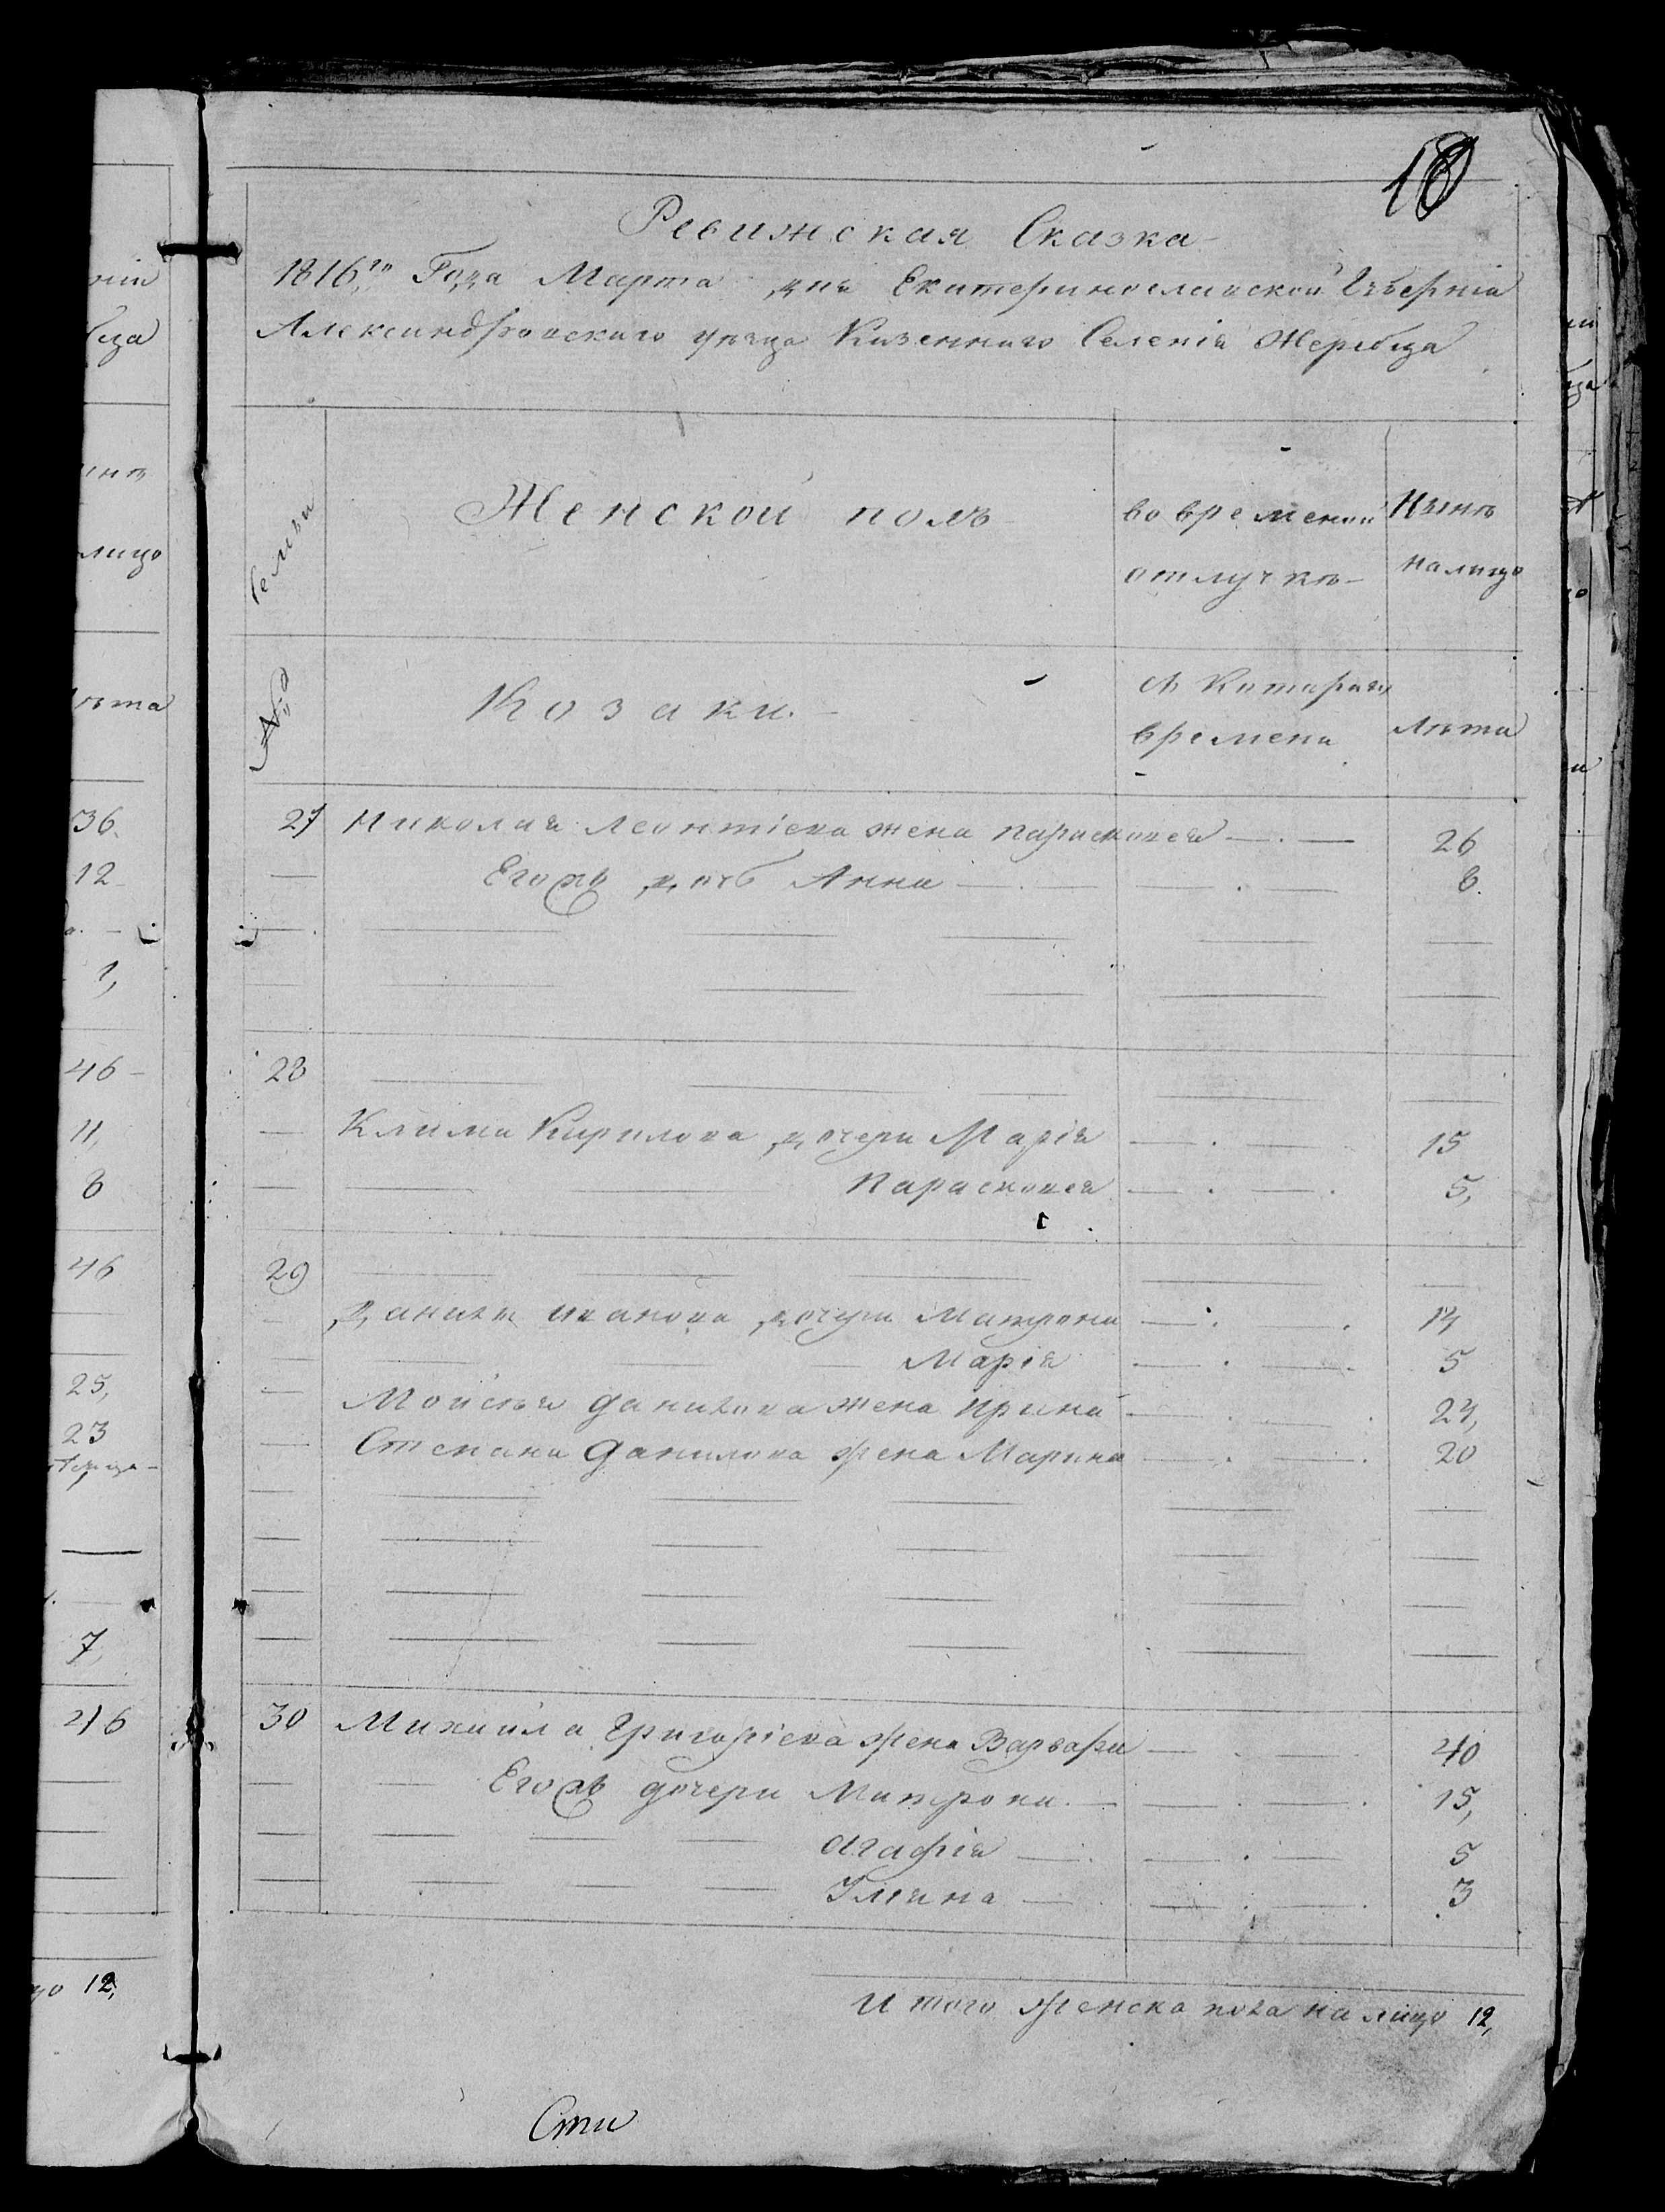 18
Ревижская Сказка
1816го Года Марта дня Екатеринославской Губернiи
Александровского уезда Казенного Селенiя Жеребца
Семьи
Женской полъ
во временной отлучкѣ
Нынѣ налицо
№
Козаки.
съ Котораго времени
Лѣта
27 Николая Леонтiева жена Парасковея 26
Егожъ дочь Анна 8.
28
Клима Кирилова дочери Марiя 15
Парасковея 5,
29
Данилы Иванова дочери Матрона 14
Марiя 5
Мойсея Данилова жена Ирина 24,
Степана Данилова жена Марина 20
30 Михайла Григорiева жена Варвара 40
Егожъ дочери Матрона 15,
Агафiя 5
Улiяна 3
Итого женска пола на лицо 12,
Сти
36.
12
1,
46
11,
8
46
25,
23
7,
46
12,